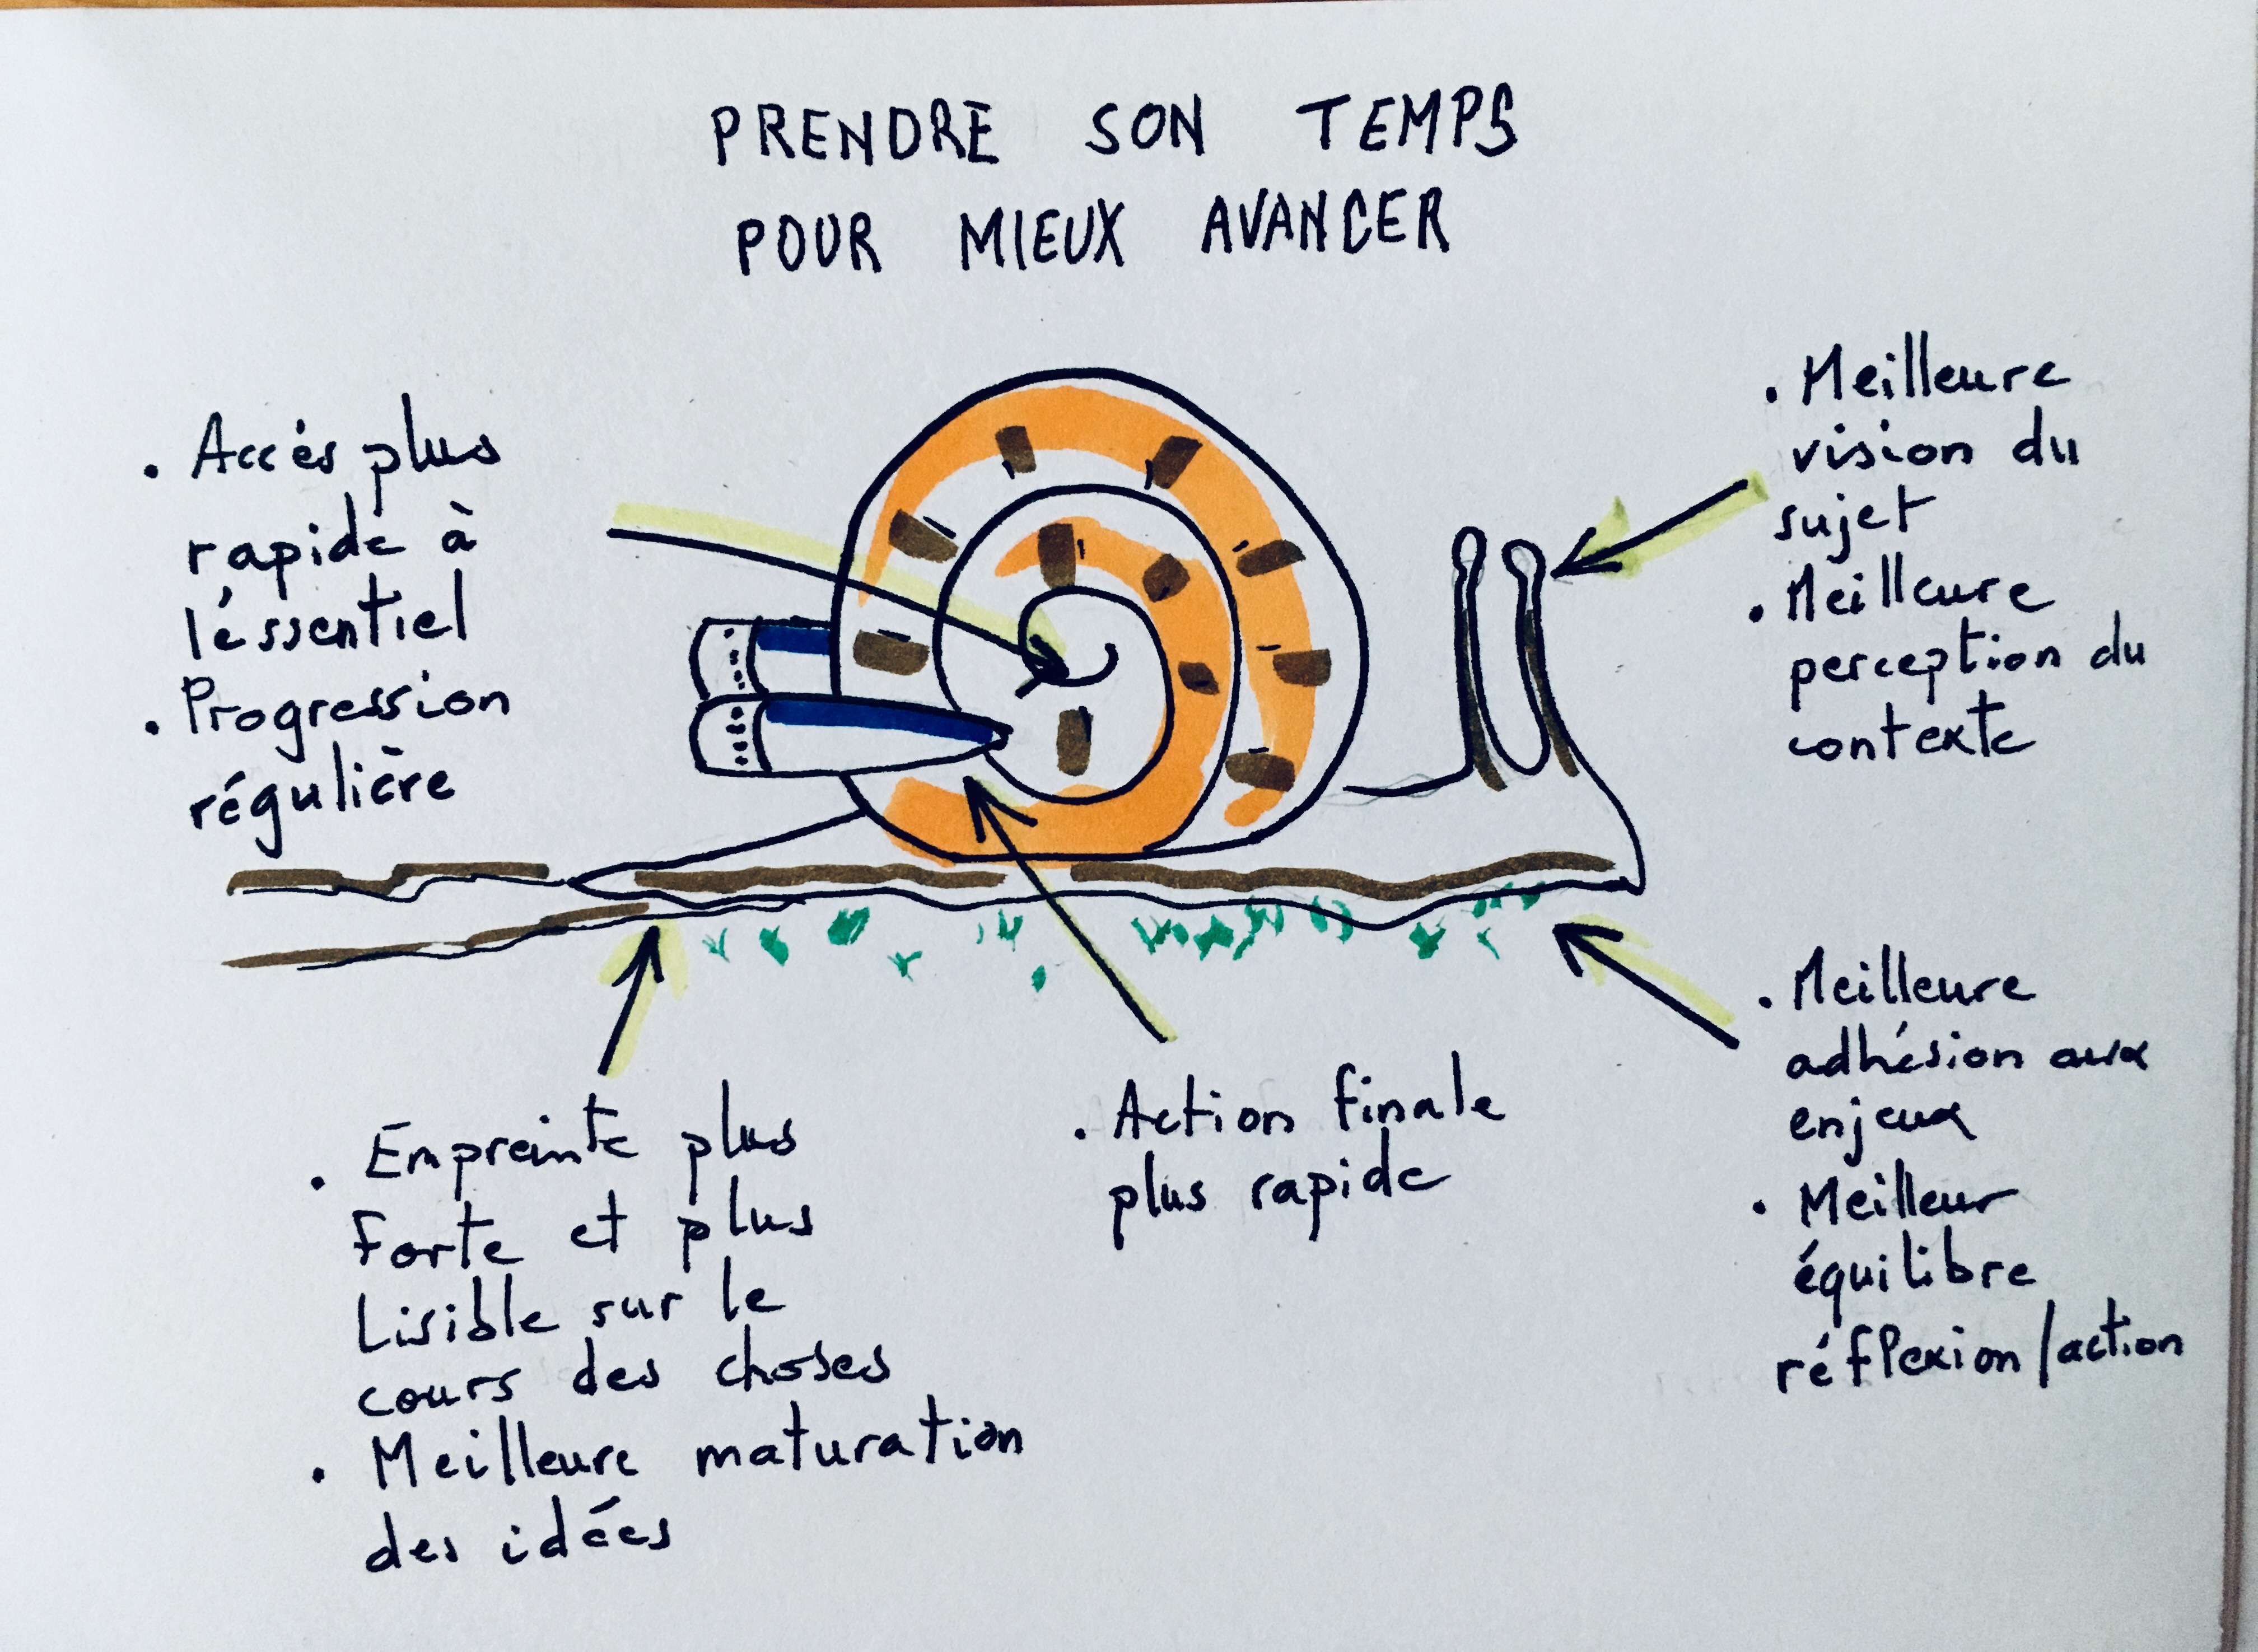 PRENDRE SON TEMPS
POUR MIEUX AVANCER
. Accès plus
rapide à
l'éssentiel
. Progression
régulière
. Meilleure
vision du
sujet
. Meilleure
perception du
contexte
. Empreinte plus
forte et plus
Lisible sur le
cours des choses
. Meilleure maturation
des idées
. Action finale
plus rapide
. Meilleure
adhésion aux
enjeux
. Meilleur
équilibre
réflexion/action